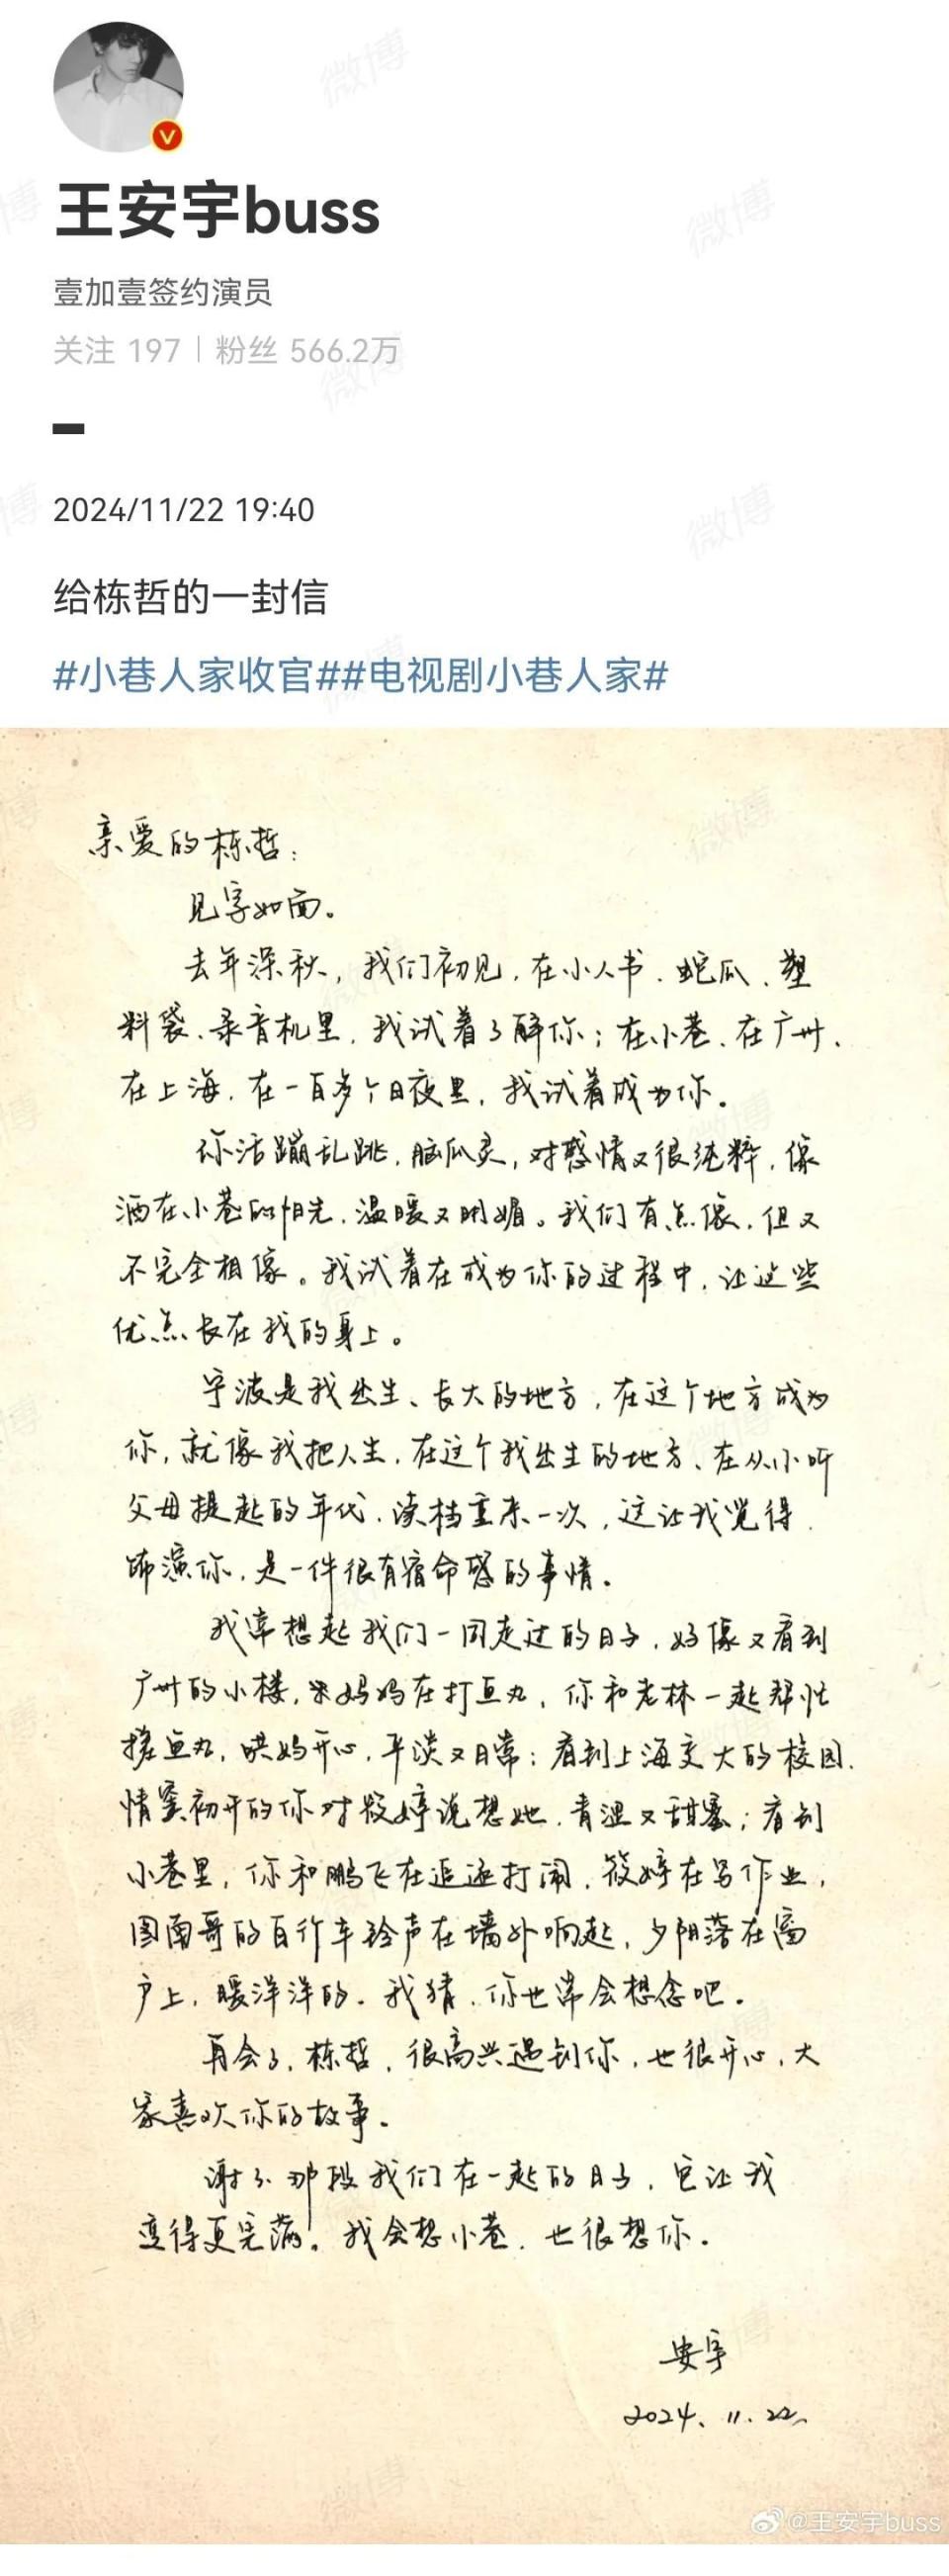 王安宇buss
壹加壹签约演员
关注 197 | 粉丝 566.2万
2024/11/22 19:40
给栋哲的一封信
#小巷人家收官##电视剧小巷人家#
亲爱的栋哲:
见字如面。
去年深秋,我们初见,在小人书、蛇瓜、塑
料袋、录音机里,我试着了解你;在小巷、在广州、
在上海,在一百多个日夜里,我试着成为你。
你活蹦乱跳,脑瓜灵,对感情又很纯粹,像
洒在小巷的阳光,温暖又明媚。我们有点像,但又
不完全相像。我试着在成为你的过程中,让这些
优点长在我的身上。
宁波是我出生、长大的地方,在这个地方成为
你,就像我把人生,在这个我出生的地方、在从小听
父母提起的年代,读档重来一次,这让我觉得,
饰演你,是一件很有宿命感的事情。
我常想起我们一同走过的日子,好像又看到
广州的小楼,宋妈妈在打鱼丸,你和老林一起帮忙
搓鱼丸,哄妈开心,平淡又日常;看到上海交大的校园,
情窦初开的你对筱婷说想她,青涩又甜蜜;看到
小巷里,你和鹏飞在追逐打闹,筱婷在写作业,
图南哥的自行车铃声在墙外响起,夕阳落在窗
户上,暖洋洋的。我猜,你也常会想念吧。
再会了,栋哲,很高兴遇到你,也很开心,大
家喜欢你的故事。
谢了那段我们在一起的日子,它让我
变得更完满。我会想小巷,也很想你。
安宇
2024、11.22、
@王安宇buss
微博